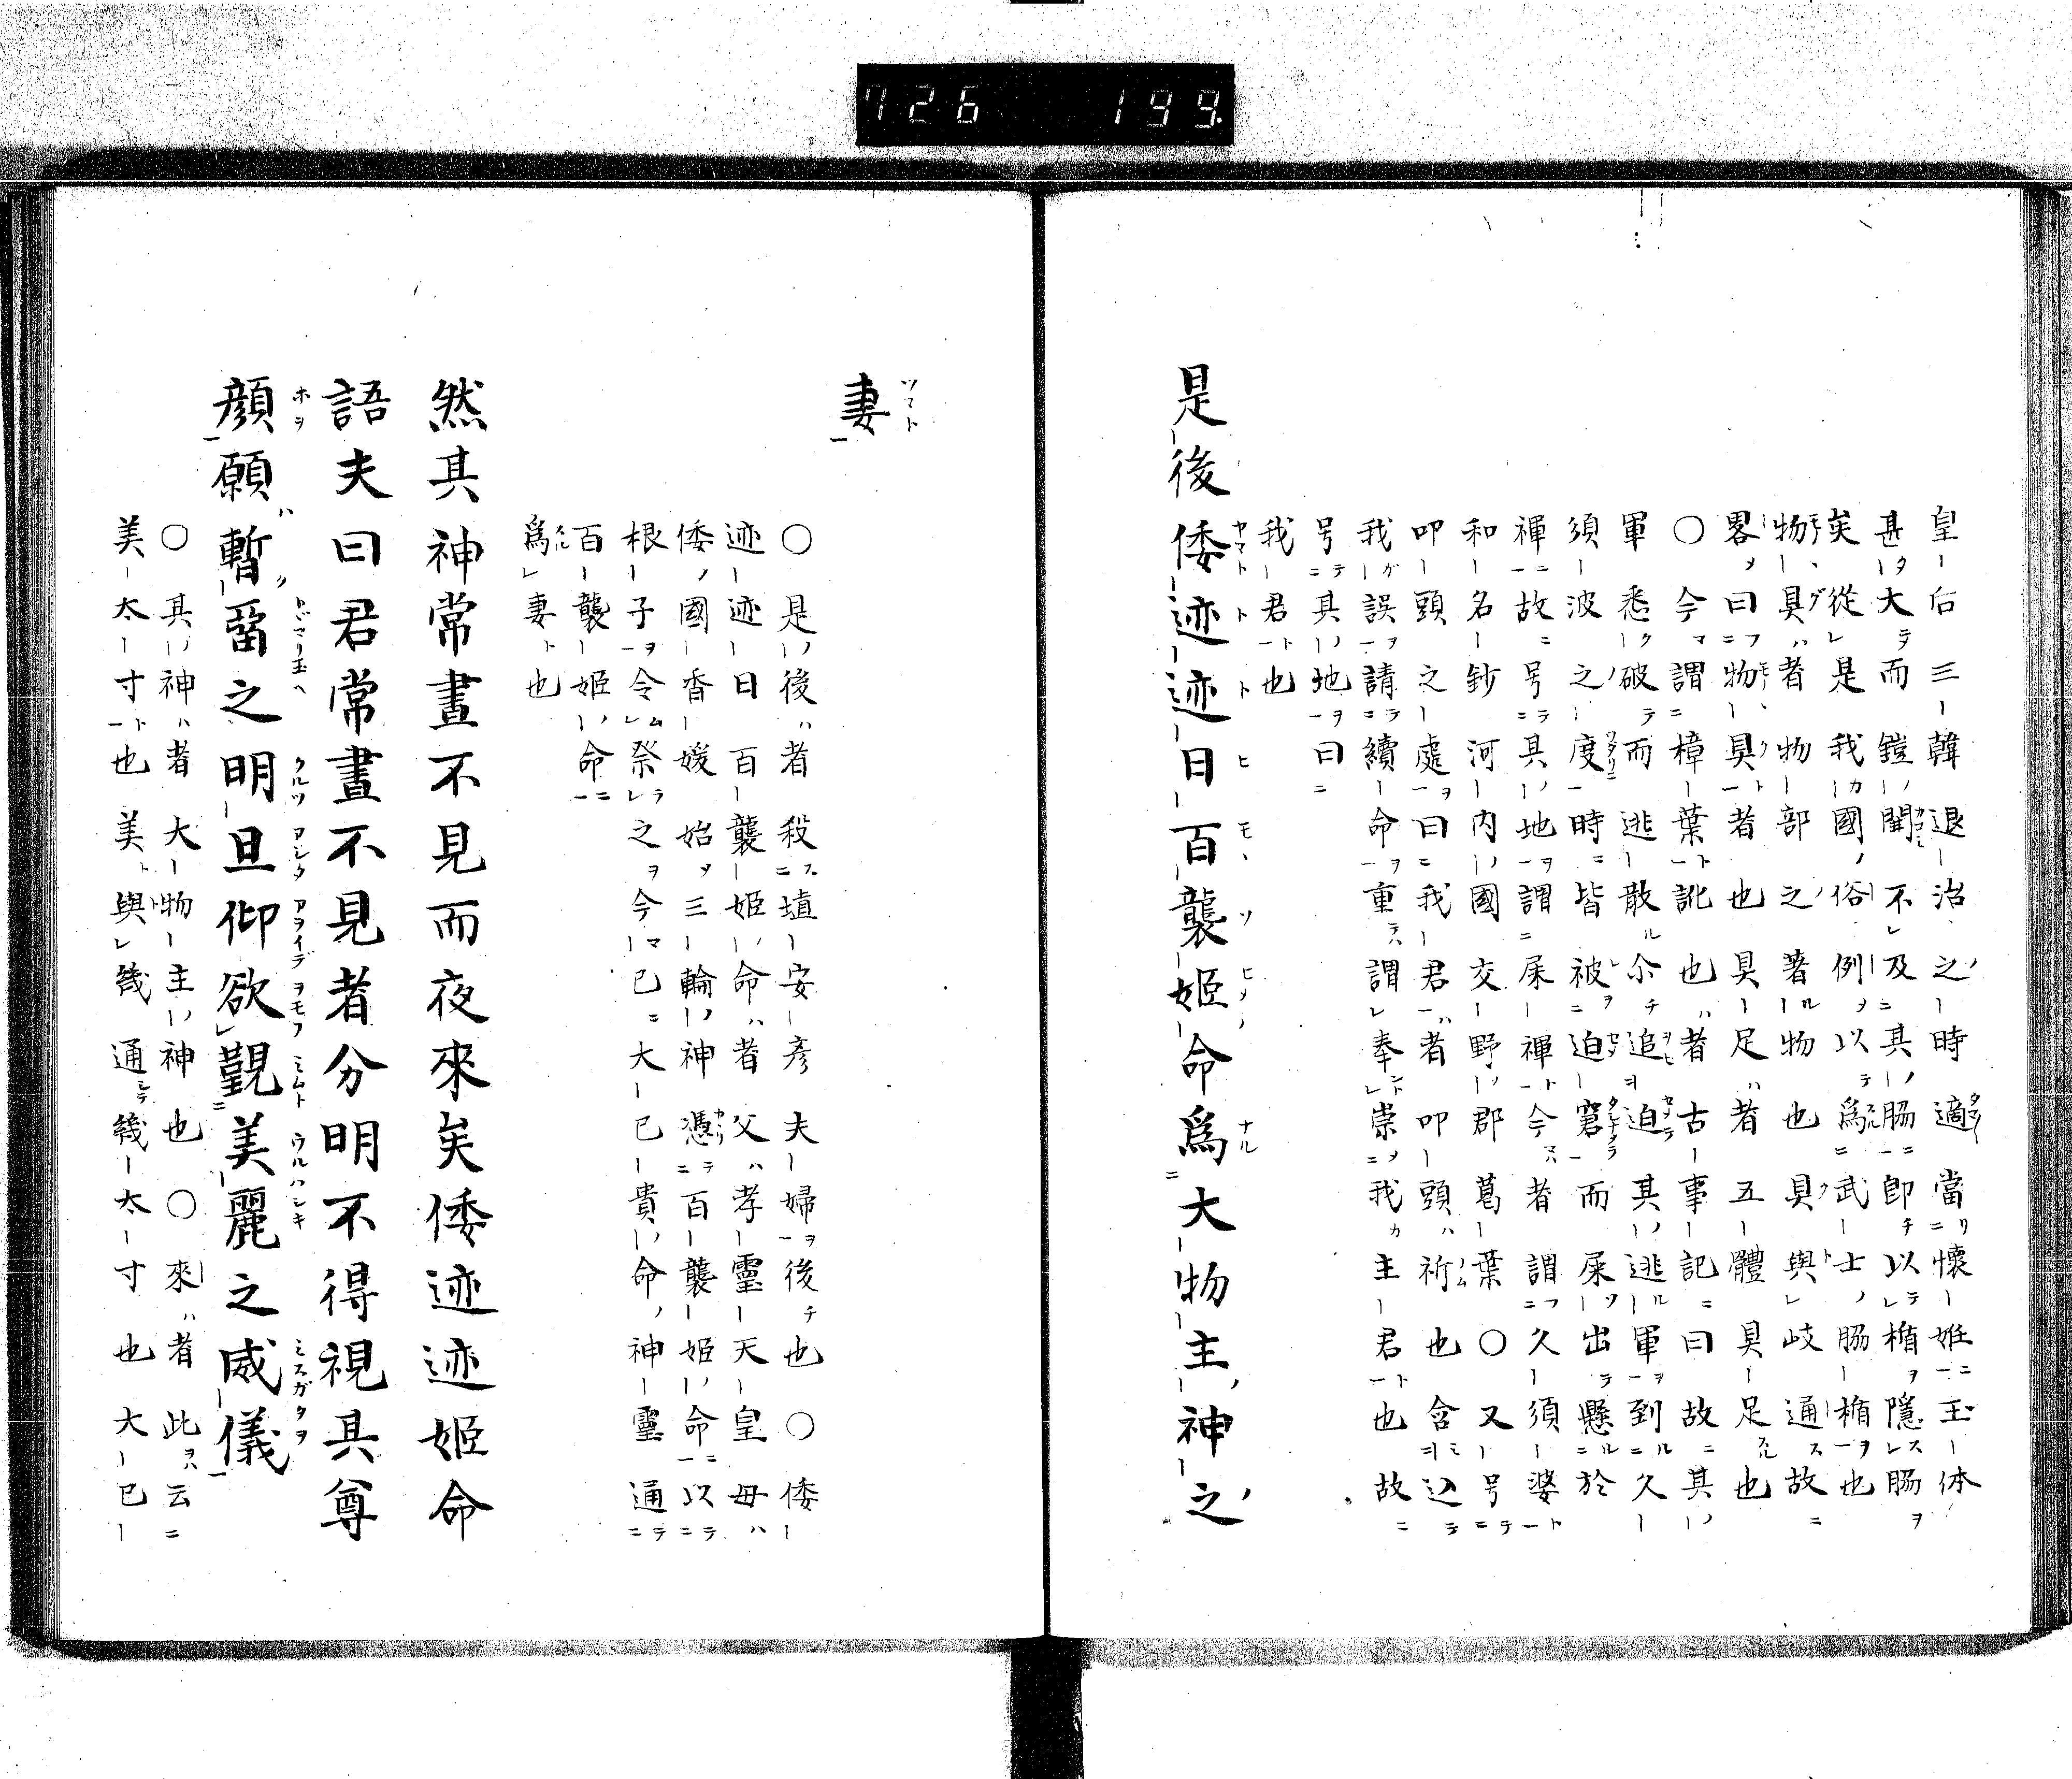 726 199.
皇后三韓退治之時適當懷姙玉体
甚大而鎧闊不及其脇卽以楯隱脇
矣從是我國俗例以爲武士脇楯也
物具者物部之著物也具與岐通故
畧曰物具者也具足者五體具足也
○今謂樟葉訛也者古事記曰故其
軍悉破而逃散尒追迫其逃軍到久
須波之度時皆被迫窘而屎出懸於
褌故号其地謂屎褌今者謂久須婆
和名鈔河内國交野郡葛葉○又号
叩頭之處曰我君者叩頭祈也含込
我誤請續命重謂奉崇我主君也故
号其地曰
我君也
是後倭迹迹日百襲姬命爲大物主神之
妻
○是後者殺埴安彥夫婦後也○倭
迹迹日百襲姬命者父孝靈天皇母
倭國香媛始三輪神憑百襲姬命以
根子令祭之今已大已貴命神靈通
百襲姬命
爲妻也
然其神常晝不見而夜來矣倭迹迹姬命
語夫曰君常晝不見者分明不得視其尊
顏願暫畱之明旦仰欲覲美麗之威儀
○其神者大物主神也○來者此云
美太寸也美與幾通幾太寸也大已